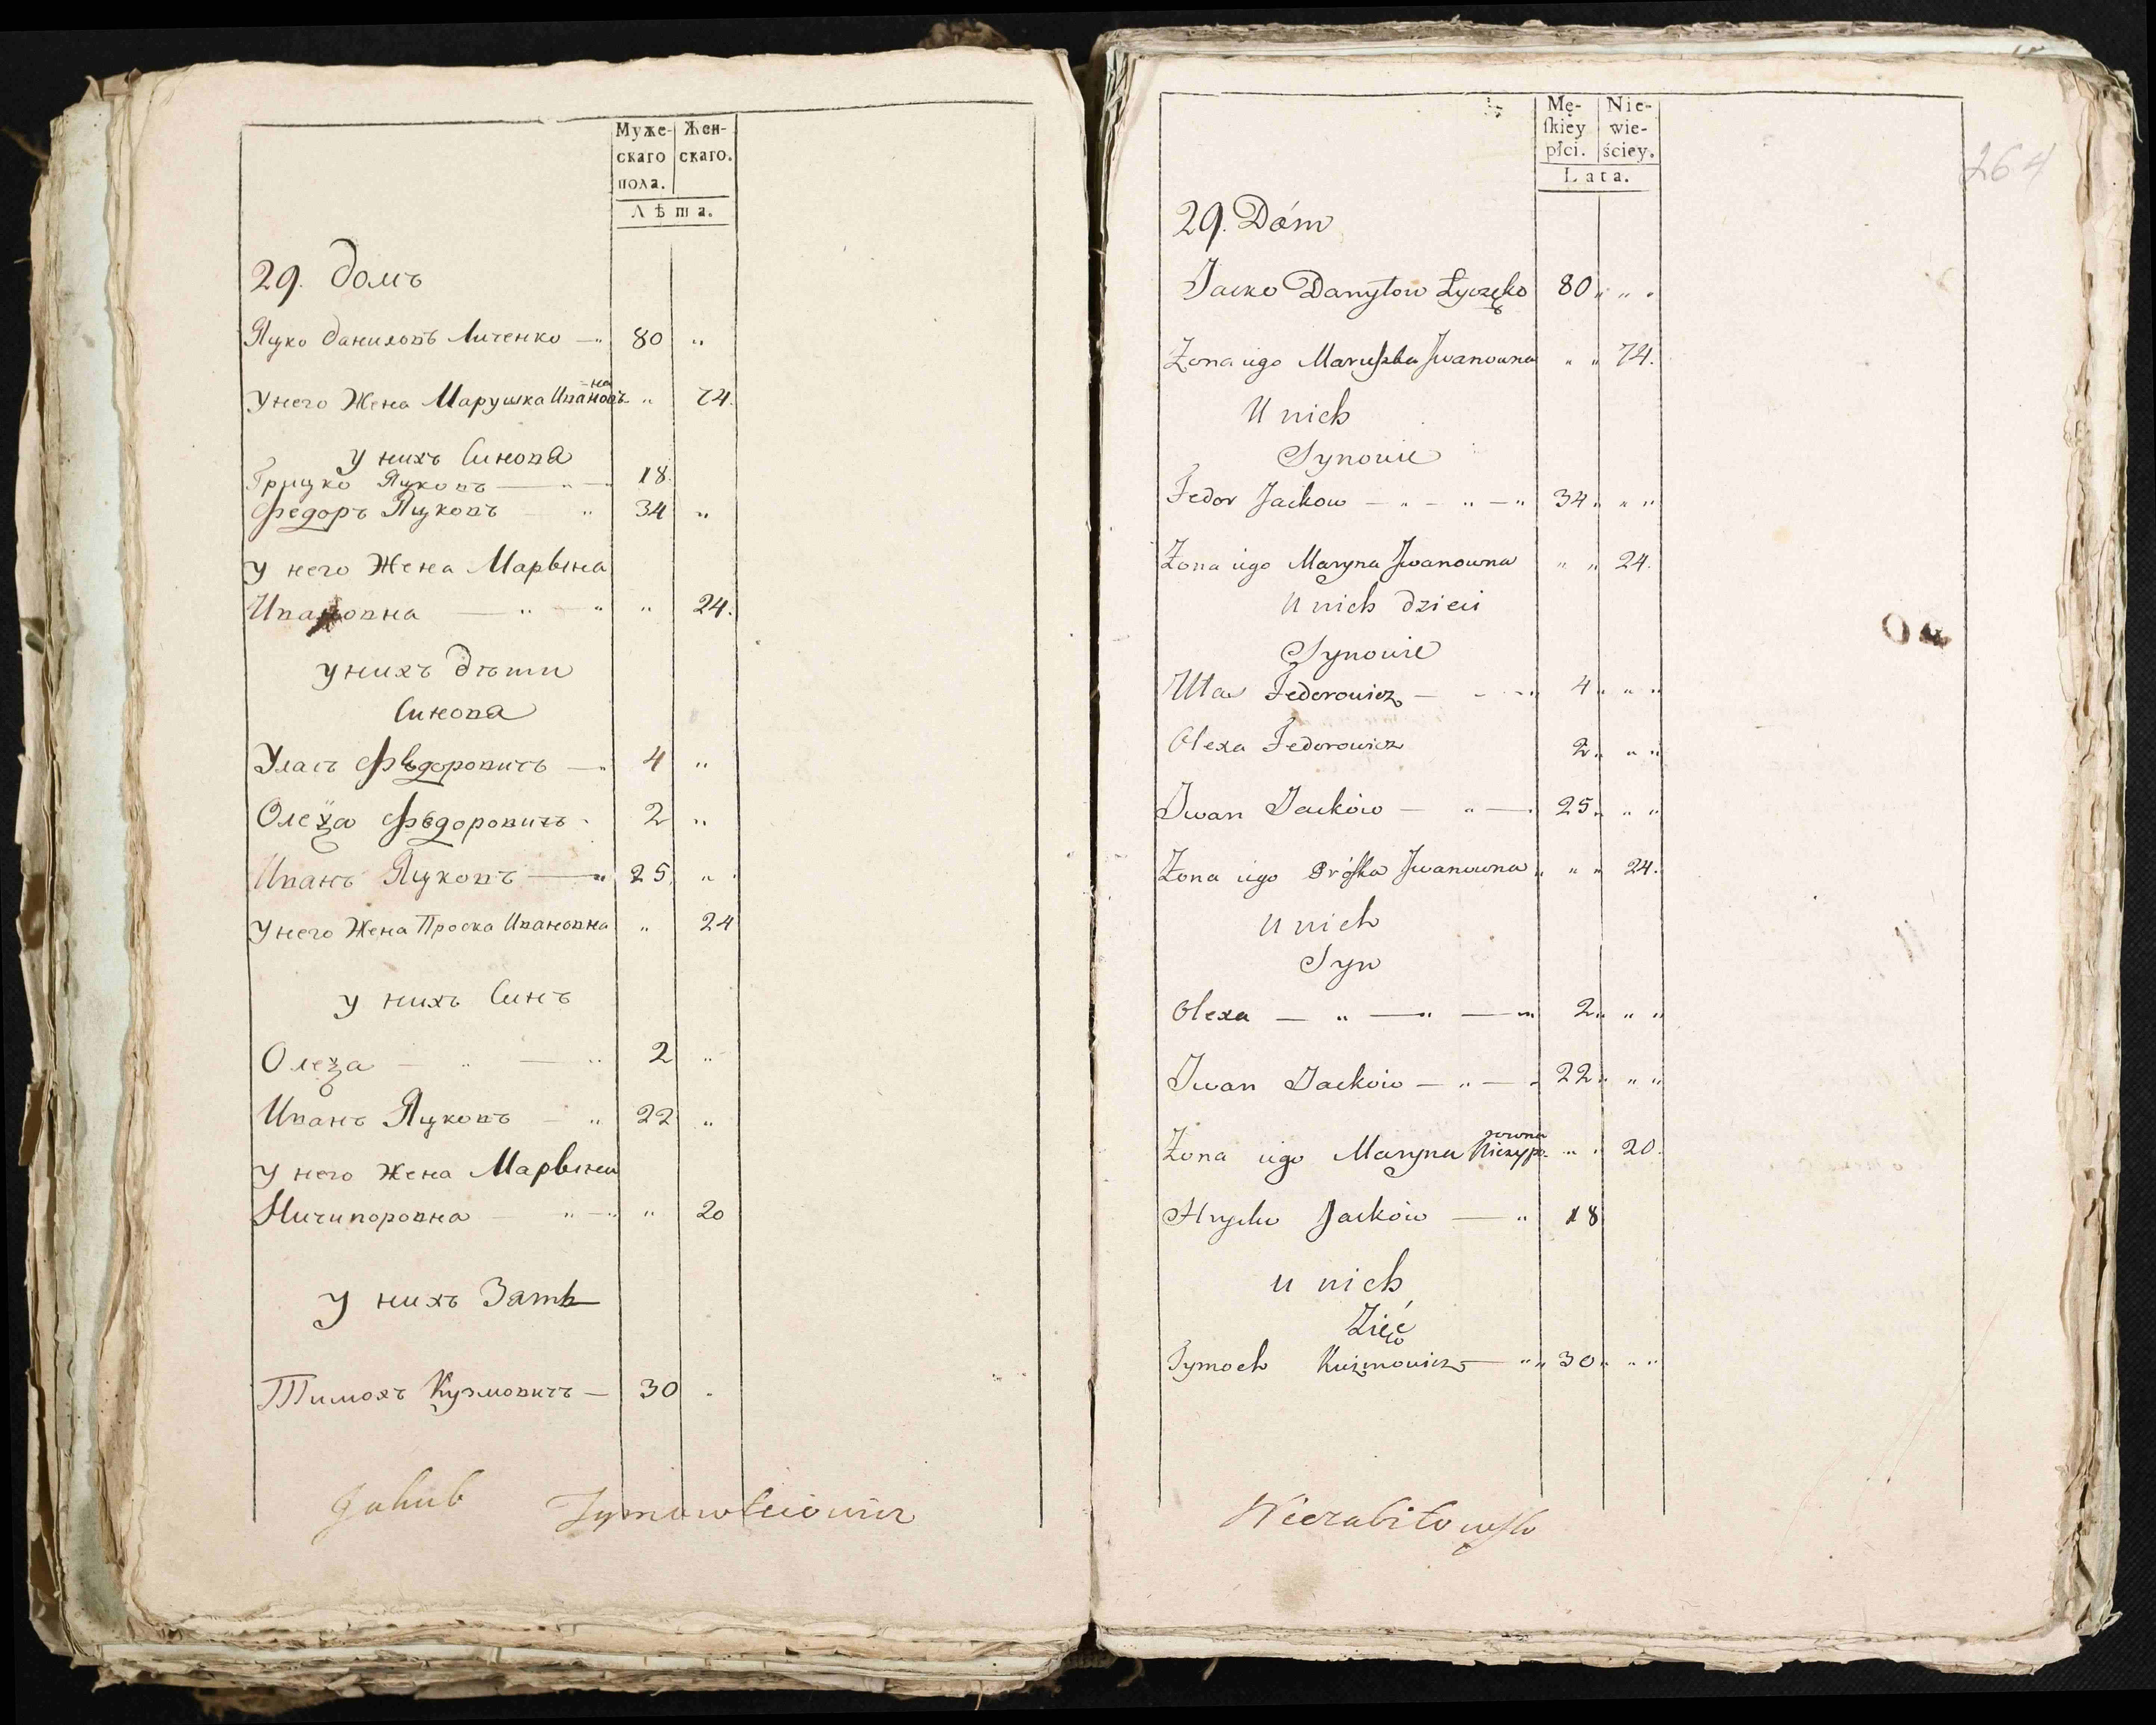 Муже- Жен-
скаго скаго.
пола.
Лѣта.
29. Домъ
Яцко Даниловъ Личенко — „ 80 „
У него Жена Марушка Ивановъна „ 74.
у нихъ Синова
Грицко Яцковъ — „ — 18.
Федоръ Яцковъ „ 34 „
у него Жена Марына
Ивановна — „ „ „ 24.
у нихъ дѣти
Синова
Уласъ Федоровичъ — „ 4 „
Олеѯа Федоровичъ 2 „
Иванъ Яцковъ — „ 25. „
У него Жена Проска Ивановна „ 24
у нихъ Синъ
Олеѯа — „ — „ 2 „
Иванъ Яцковъ — „ 22 „
у него Жена Марына
Ничипоровна — „ — „ „ 20
у нихъ Зать
Тимохъ Кузмовичъ — 30 „
Jakub
Mę- Nie-
ſkiey wie-
płci. ściey.
Lata.
264
29. Dóm
Jacko Danyłow Łyczęko 80 „ „ „
Żona iego Maruſzka Jwanowna „ „ 74.
U nich
Synowie
Fedor Jackow — „ — „ — „ 34 „ „ „
Żona iego Maryna Jwanowna „ „ 24.
U nich dzieci
Synowie
Ułas Fedorowicz — - - „ 4 „ „ „
Olexa Fedorowicz 2 „ „ „
Jwan Jacków — „ — 25 „ „ „
Żona iego Próſka Jwanowna „ „ „ 24.
U nich
Syn
Olexa — „ — „ — „ 2 „ „ „
Jwan Jacków — „ — „ 22 „ „ „
Żona iego Maryna Niczyporowna „ „ 20.
Hrycko Jacków — „ 18
u nich
Zięć
Tymoch Kuźmowicz — „ „ 30 „ „ „